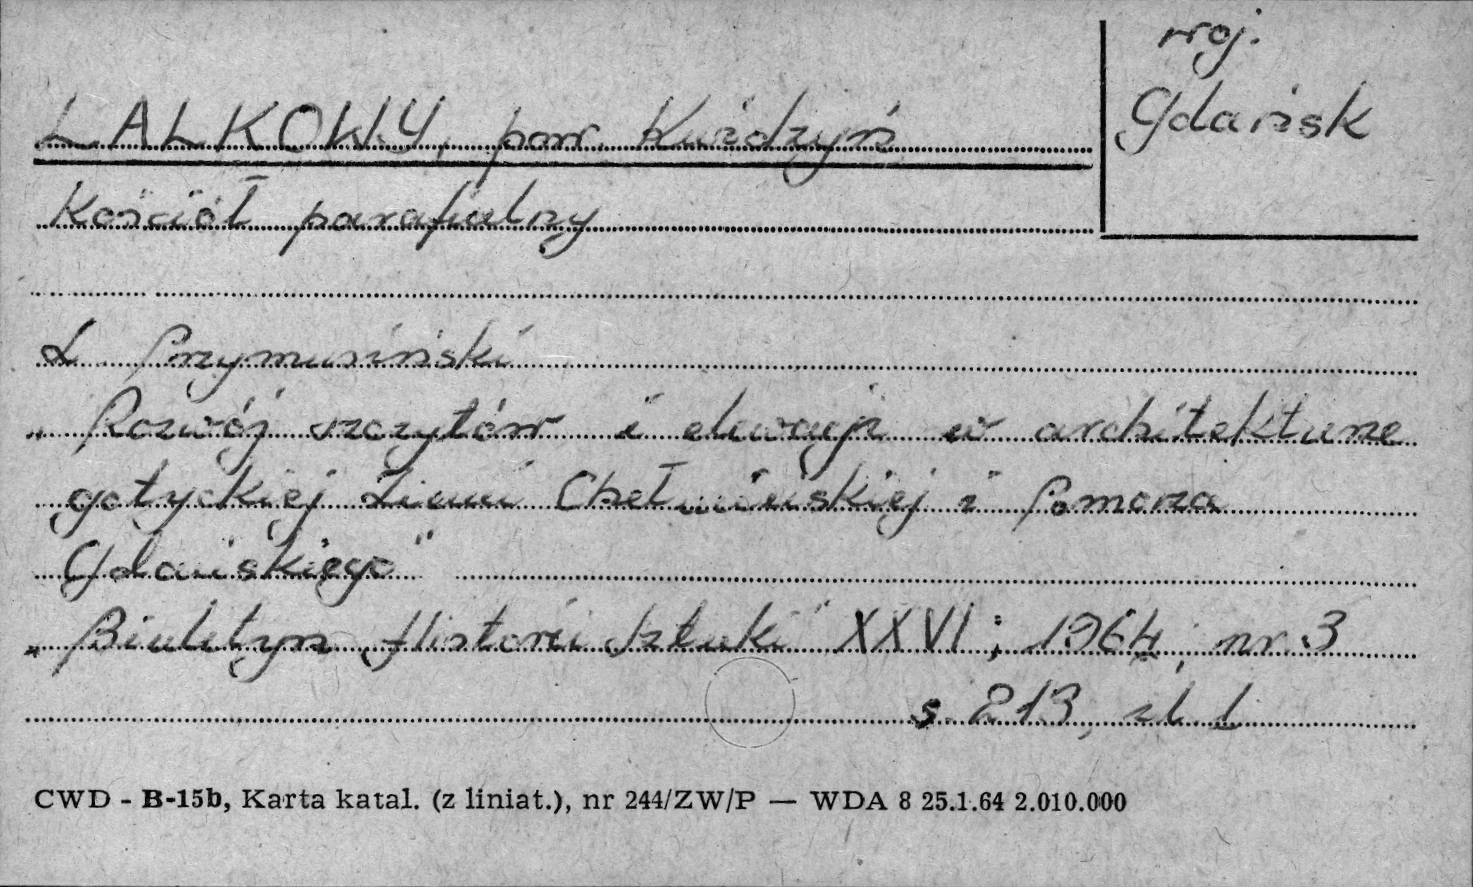 woj.
Gdańsk
LALKOWY, pow. Kwidzyń
Kościół parafialny
L Przymusiński
„Rozwój szczytów i elewacji w architekturze
gotyckiej Ziemi Chełmińskiej i Pomorza
Gdańskiego"
„Biuletyn Historii Sztuki" XXVI; 1964, nr 3
s. 213, il 1
CWD - B-15b, Karta katal. (z liniat.), nr 244/ZW/P — WDA 8 25.1.64 2.010.000